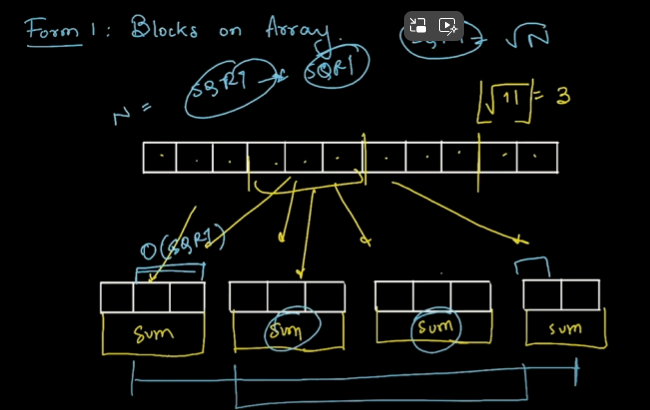 Form 1 : Blocks on Array.
SQRT = √N
N = SQRT * SQRT
⌊√11⌋ = 3
O(SQRT)
sum sum sum sum